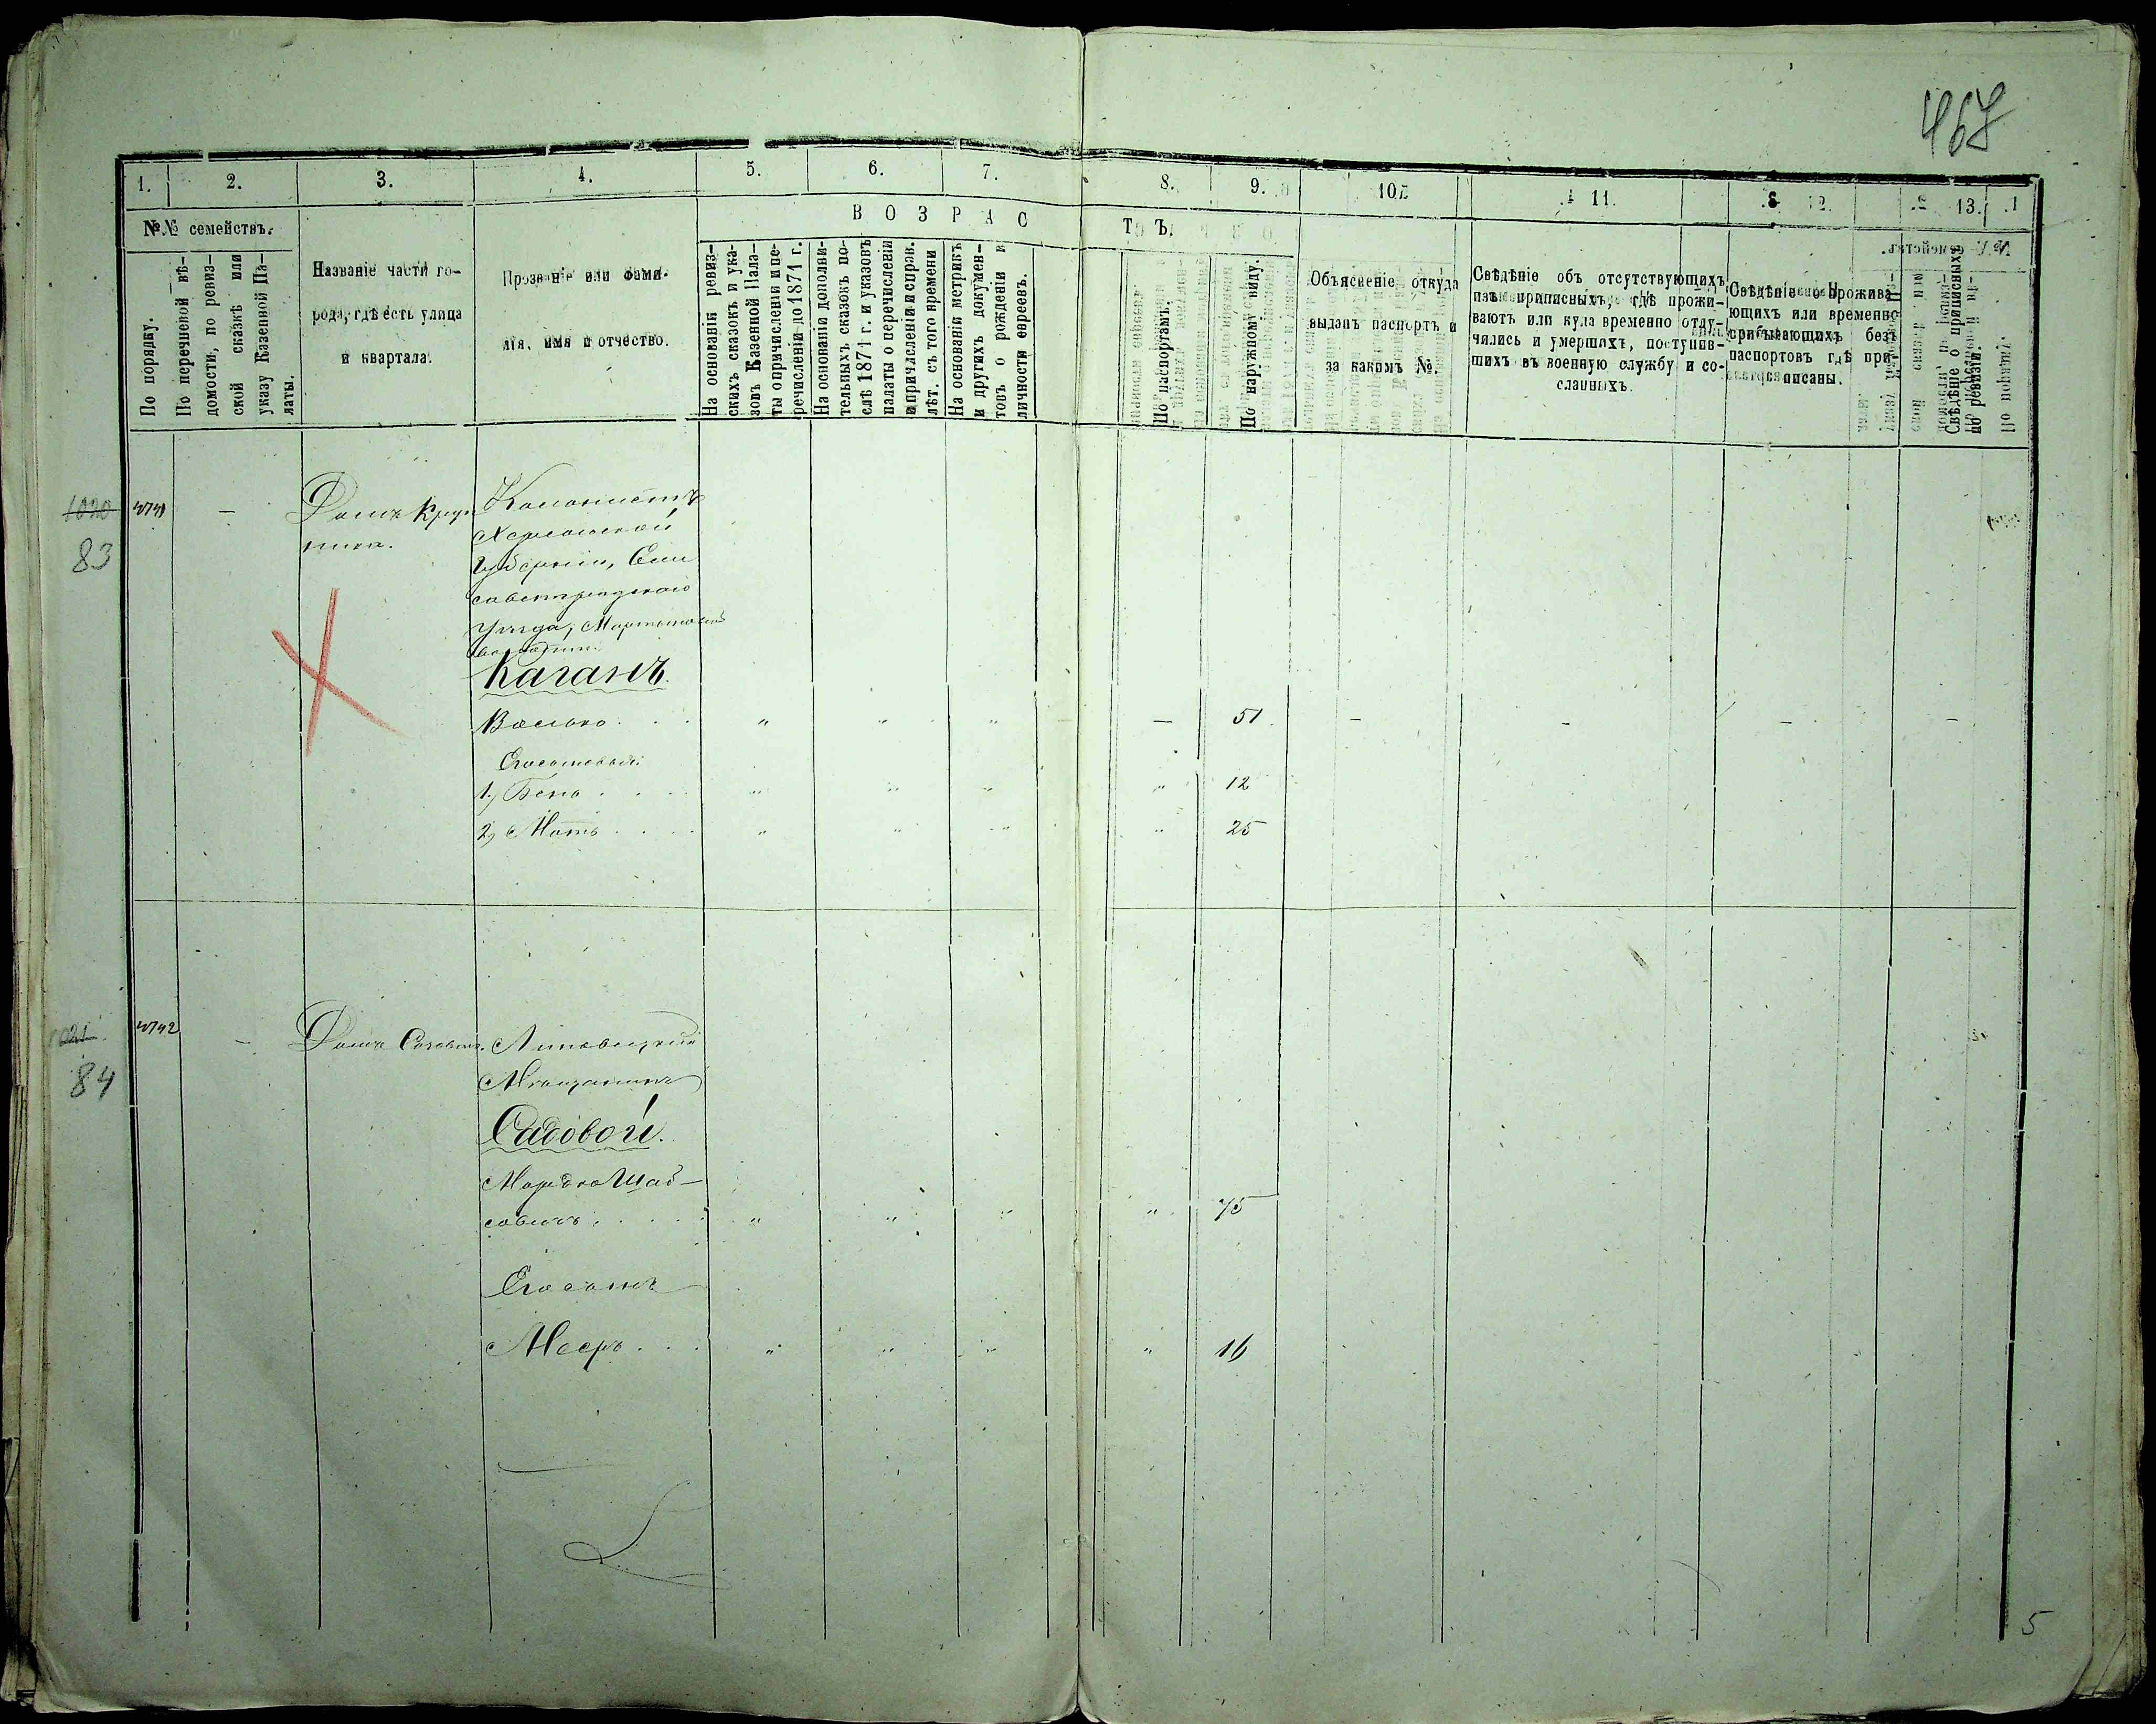 467
1. 2. 3. 4. 5. 6. 7. 8. 9. 10. 11. 12. 13.
№№ семействъ.
По порядку.
По перечневой вѣ-
домости, по ревиз-
ской сказкѣ или
указу Казенной Па-
латы.
Названіе части го-
рода, гдѣ есть улица
и квартала.
Прозваніе или фами-
лія, имя и отчество.
ВОЗРАСТЪ.
На основаніи ревиз-
скихъ сказокъ и ука-
зовъ Казенной Пала-
ты о причисленіи и пе-
речисленіи до 1871 г.
На основаніи дополни-
тельныхъ сказокъ по-
слѣ 1871 г. и указовъ
палаты о перечисленіи
и причисленіи и справ.
лѣт. съ того времени
На основаніи метрикъ
и другихъ докумен-
товъ о рожденіи и
личности евреевъ.
По паспортамъ.
По наружному виду.
Объясненіе откуда
выданъ паспортъ и
за какимъ №.
Свѣдѣніе объ отсутствующихъ
изъ приписныхъ, гдѣ прожи-
ваютъ или куда временно отлу-
чились и умершихъ, поступив-
шихъ въ военную службу и со-
сланныхъ.
Свѣдѣніе о прожива-
ющихъ или временно
прибывающихъ безъ
паспортовъ гдѣ при-
писаны.
Свѣдѣніе о приписныхъ
по ревизіи.
1020
83
Домъ Круп
ника.
Колонистъ
Херсонской
Губерніи, Ели
саветградскаго
Уѣзда,
Каганъ
Васько
51
Сыновья:
1, Беня
12
2, Моть
25
84
Домъ
Липовецкій
Мѣщанинъ
Садовой.
Мордко Шаб-
совичъ
75
Сынъ
Меер
16
5